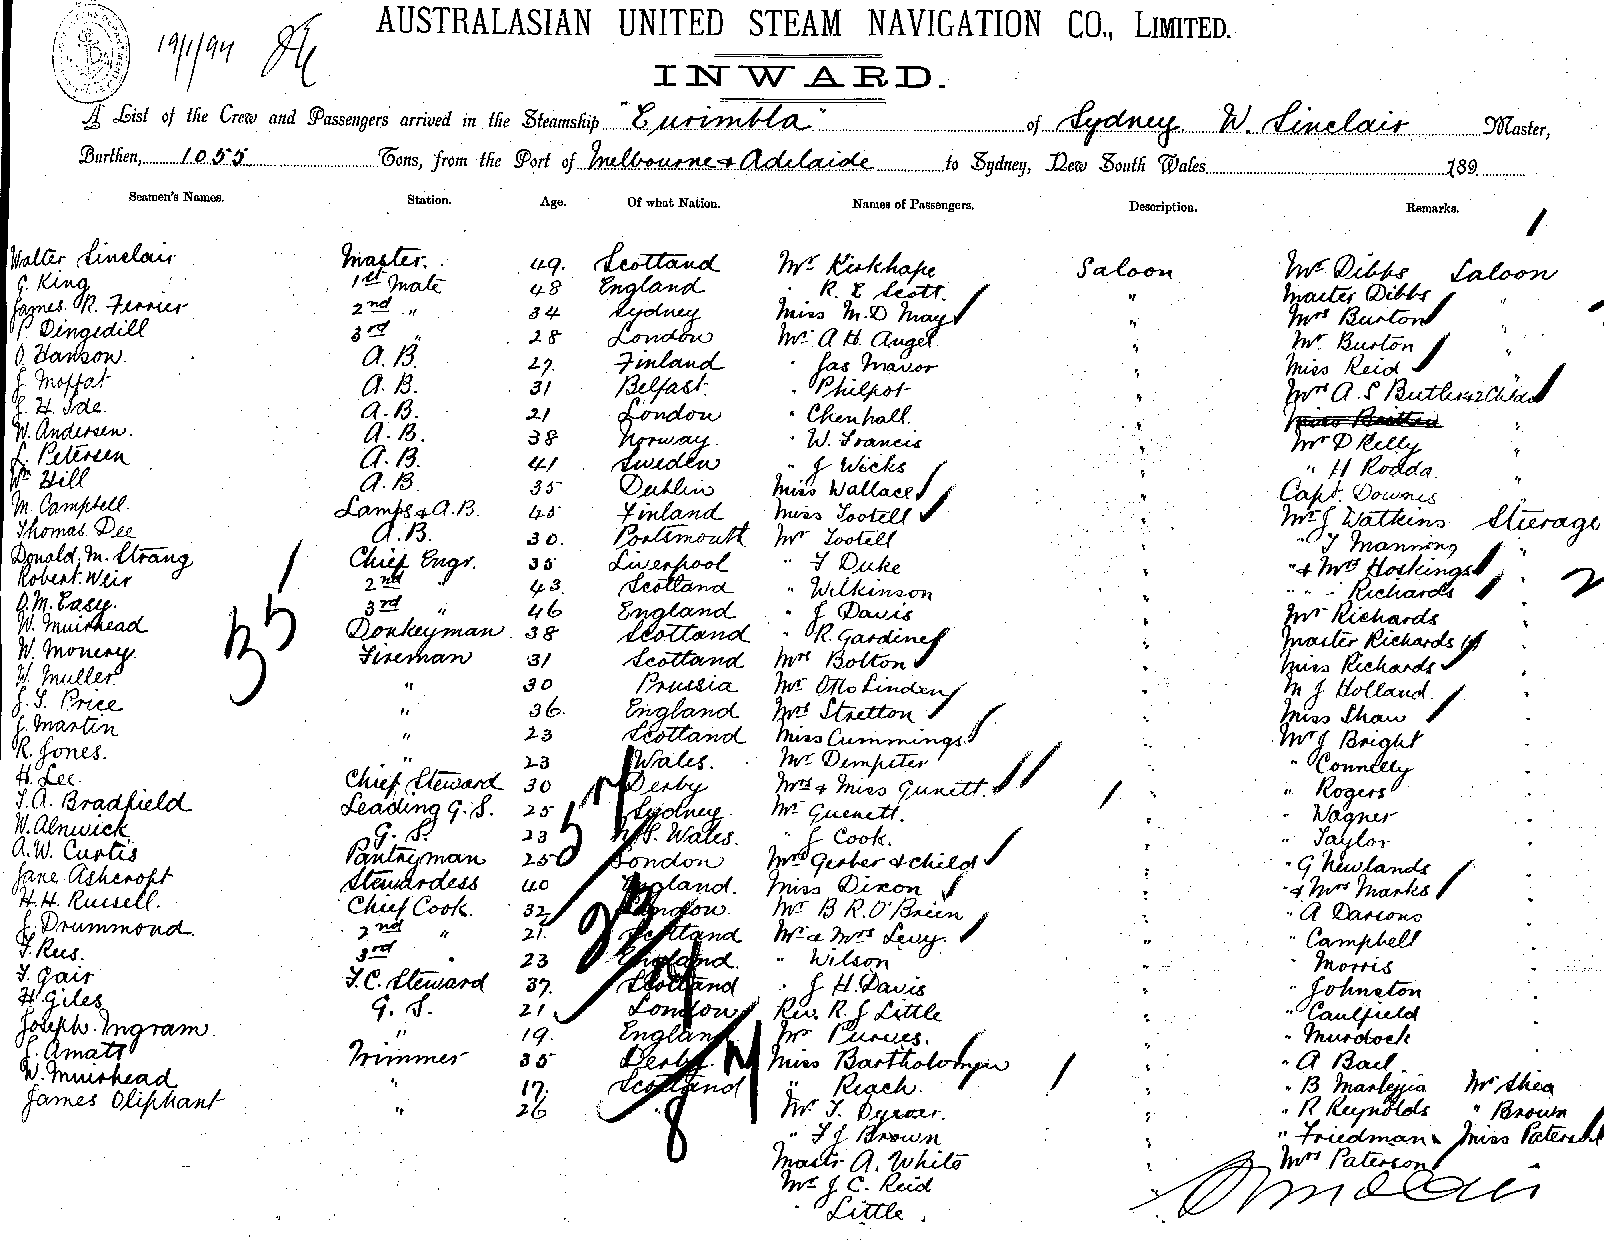 AUSTRALASIAN UNITED STEAM NAVIGATION CO., LIMITED.
19/1/94
INWARD.
A List of the Crew and Passengers arrived in the Steamship "Eurimbla" of Sydney W. Sinclair Master,
Burthen, 1055 Tons, from the Port of Melbourne & Adelaide to Sydney, New South Wales 189
Seamen's Names. Station. Age. Of what Nation. Names of Passengers. Description. Remarks.
Walter Sinclair Master. 49. Scotland Mr Kirkhape Saloon Mr Dibbs Saloon
G. King 1st Mate 48 England " R. E Scott. " Master Dibbs "
James R. Ferrier 2nd " 34 Sydney Miss M. D May " Mrs Burton
P Dingedill 3rd " 28 London Mr A H. Angel " Mr Burton "
O Hanson. A. B. 27. Finland " Jas Mavor " Miss Reid "
J Moffat A. B. 31 Belfast. " Philpot " Mrs A. S Butler & 2 Childn
J. H. Ide. A. B. 21 London " Chenhall. "
W. Andersen. A. B. 38 Norway. " W. Francis " Mr D Kelly "
L. Petersen A. B. 41 Sweden " J Wicks " " H Rodda. "
Wm Hill A. B. 35 Dublin Miss Wallace " Capt. Downes "
M. Campbell. Lamps & A.B. 45 Finland Miss Tootell " Mr J Watkins Steerage
Thomas Dee A. B. 30. Portsmouth Mr Tootell " " T Manning "
Donald. M. Strang Chief Engr. 35 Liverpool " T Duke " " & Mrs Hoskings "
Robert Weir 2nd " 43. Scotland " Wilkinson " " " " Richards "
O. M. Easy. 3rd " 46 England " J Davis " Mr Richards "
W. Muirhead Donkeyman 38 Scotland " R. Gardiner " Master Richards "
W. Monery. Fireman 31 Scotland Mrs Bolton " Miss Richards "
W. Muller " 30 Prussia Mr Otto Linden " M J Holland. "
J. T. Price " 36. England Mrs Stretton " Miss Shaw "
J. Martin " 23 Scotland Miss Cummings " Mr J Bright "
R. Jones. " 23 Wales. Mr Dempster " " Connelly "
H. Lee. Chief Steward 30 Derby Mrs & Miss Gunett. " " Rogers "
T. A. Bradfield Leading G. S. 25 Sydney Mr Guenett. " " Wagner "
W. Alnwick G. S. 23 N. S. Wales. " J Cook. " " Taylor "
A. W. Curtis Pantryman 25 London Mrs Gerber & child " " G Newlands "
Jane Ashcroft Stewardess 40 England. Miss Dixon " " & Mrs Marks "
H. H. Russell. Chief Cook. 32 London. Mr B R. O'Brien " " A Darsons "
J. Drummond. 2nd " 21. Scotland Mr & Mrs Levy. " " Campbell "
T. Rus. 3rd " 23 England. " Wilson " " Morris "
T. Gair F. C. Steward 37. Scotland " J H. Davis " " Johnston "
H. Giles G. S. 21. London Rev. R. J Little " " Caulfield "
Joseph. Ingram. " 19. England Mr Purves. " " Murdock "
J. Amatt Trimmer 35 Derby Miss Bartholomew " " A Bail. "
W. Muirhead " 17. Scotland " Reach. " " B Marlejjia Mr Shea
James Oliphant " 26 " Mr T. " " R Reynolds " Brown
" T J Brown " " Friedman Miss Paterson
Mastr A. White " Mrs Paterson
Mr J C. Reid "
" Little.